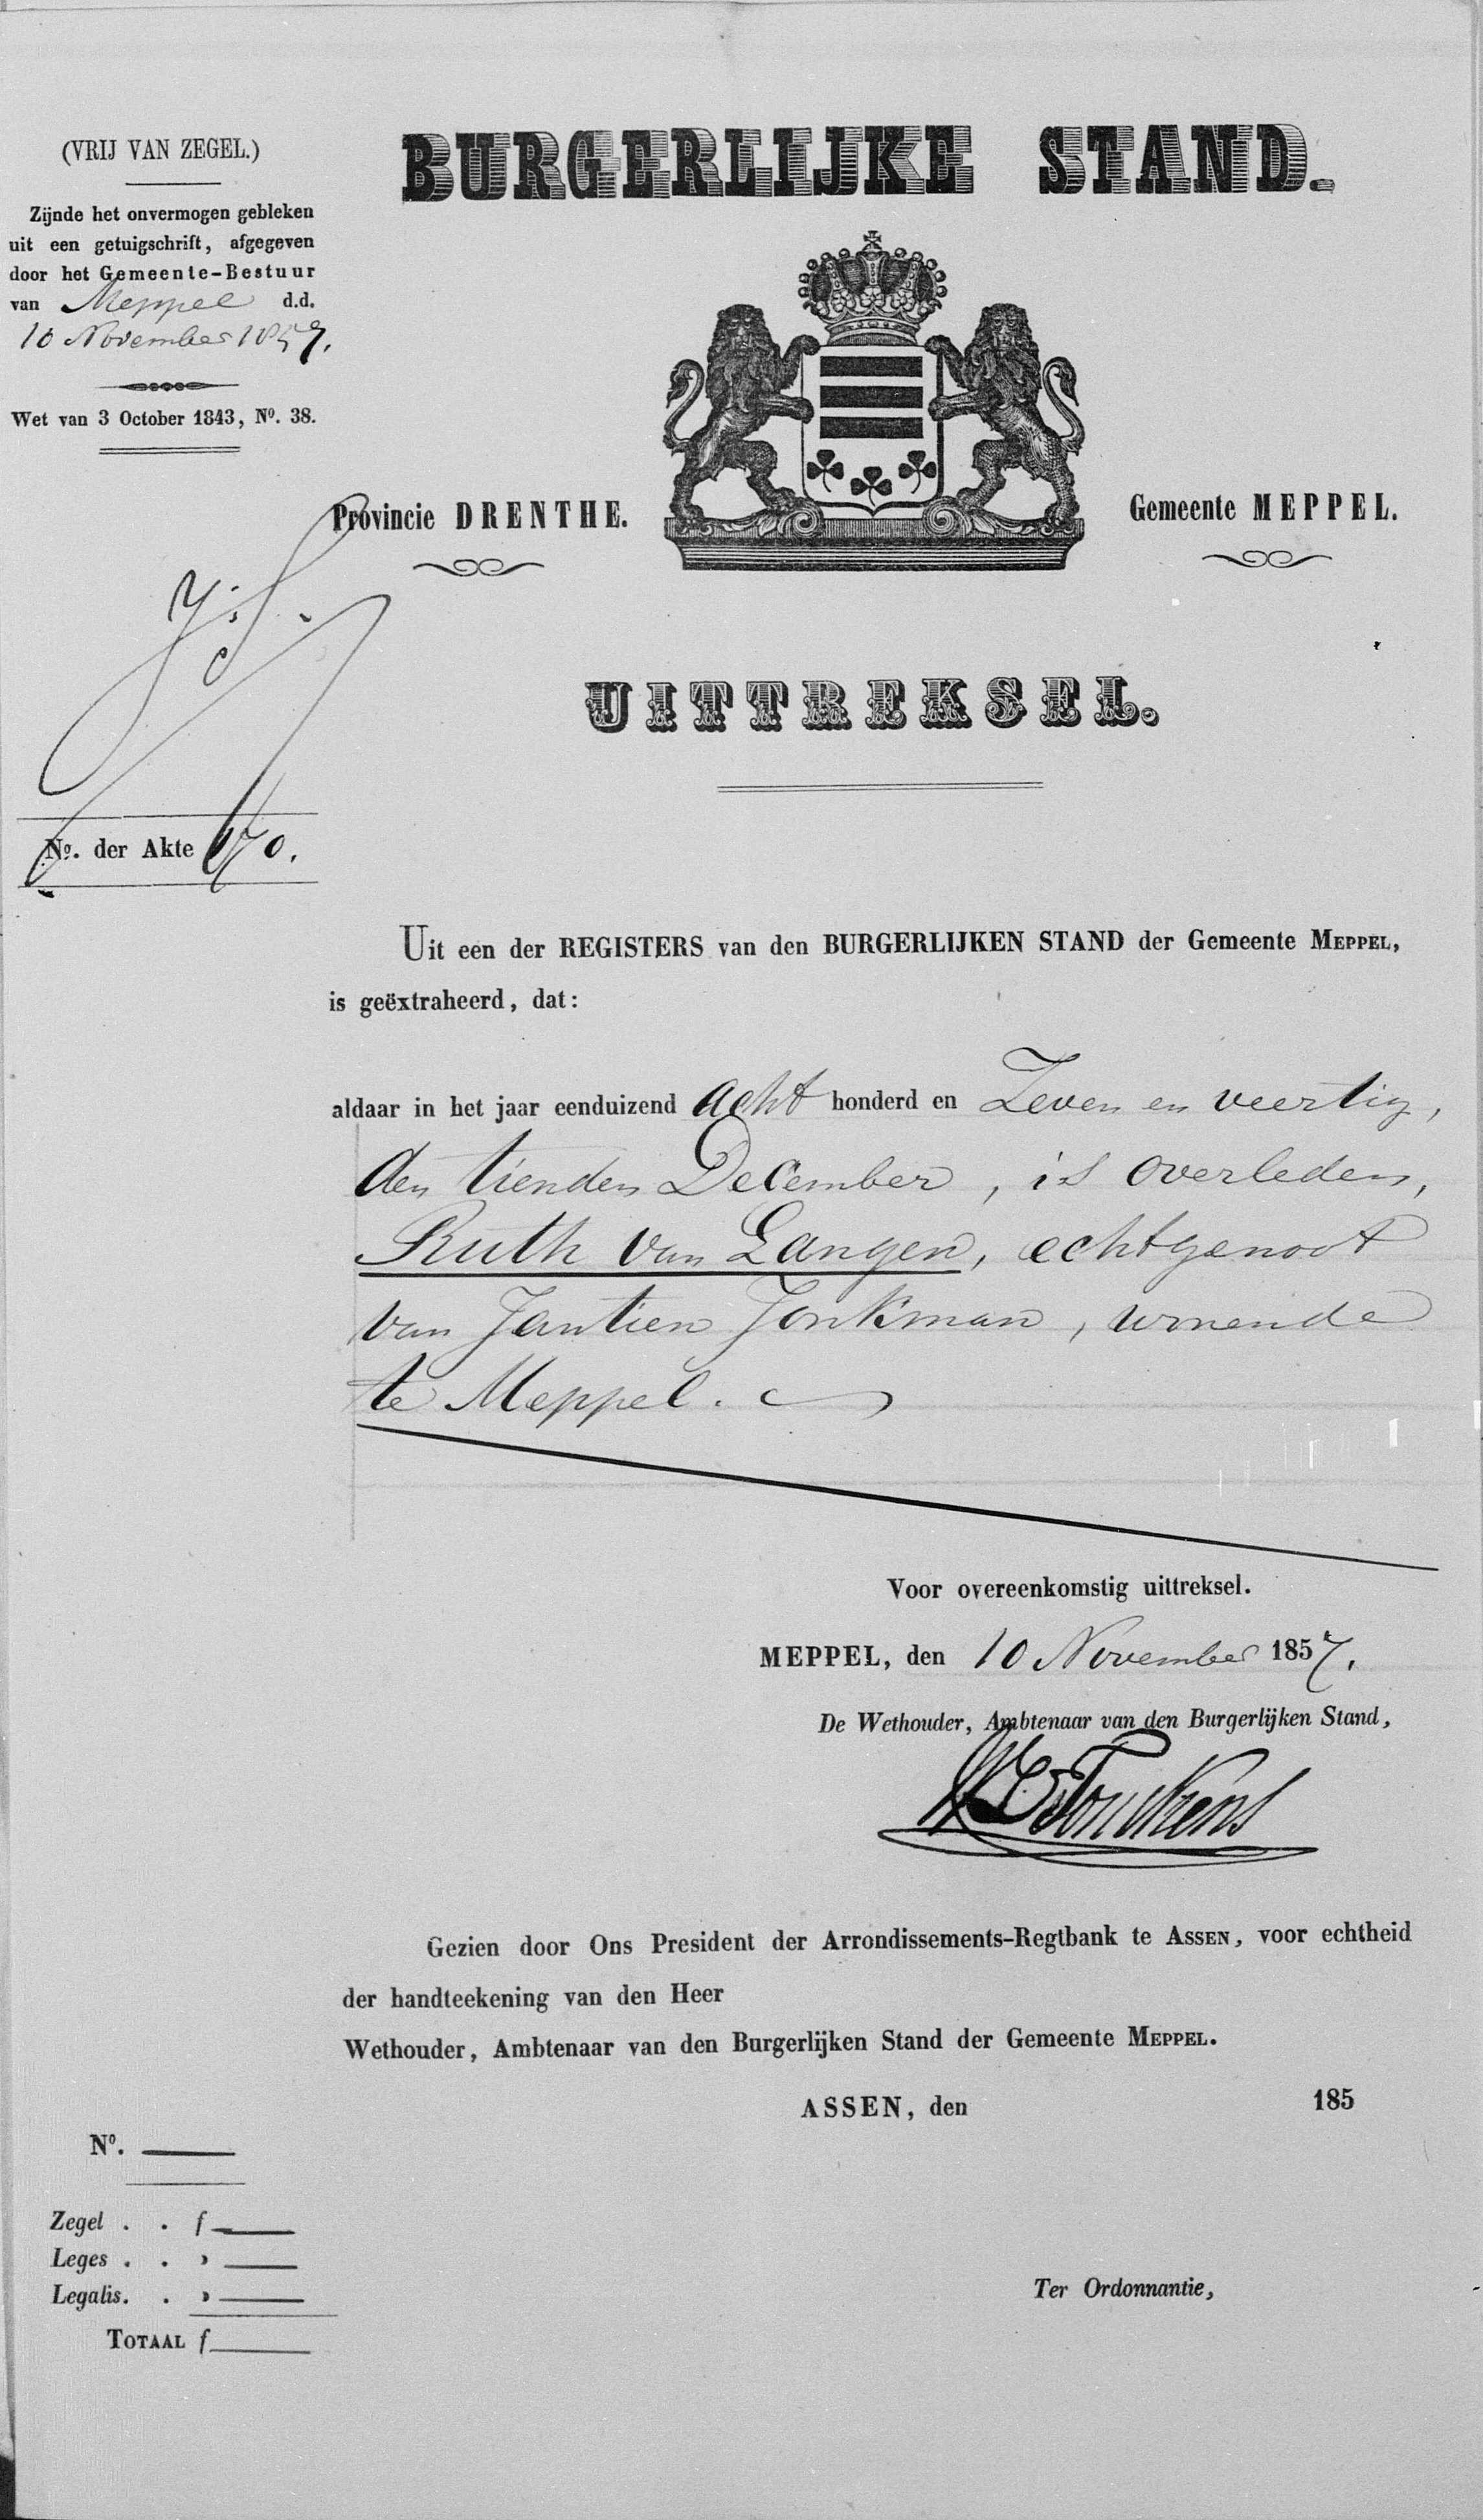 (VRIJ VAN ZEGEL.)
Zijnde het onvermogen gebleken
uit een getuigschrift, afgegeven
door het Gemeente-Bestuur
van Meppel d.d.
10 November 1857.
Wet van 3 October 1843, Nº. 38.
BURGERLIJKE STAND.
Provincie DRENTHE.
Gemeente MEPPEL.
UITTREKSEL.
Nº. der Akte 170.
Uit een der REGISTERS van den BURGERLIJKEN STAND der Gemeente MEPPEL,
is geëxtraheerd, dat:
aldaar in het jaar eenduizend acht honderd en Zeven en veertig,
den tienden December, is overleden,
Ruth van Langen, echtgenoot
van Jantien Jonkman, wonende
te Meppel.
Voor overeenkomstig uittreksel.
MEPPEL, den 10 November 1857.
De Wethouder, Ambtenaar van den Burgerlijken Stand,
Gezien door Ons President der Arrondissements-Regtbank te ASSEN, voor echtheid
der handteekening van den Heer
Wethouder, Ambtenaar van den Burgerlijken Stand der Gemeente MEPPEL.
ASSEN, den 185
Nº.
Zegel . . f
Leges . . »
Legalis. . »
TOTAAL f
Ter Ordonnantie,